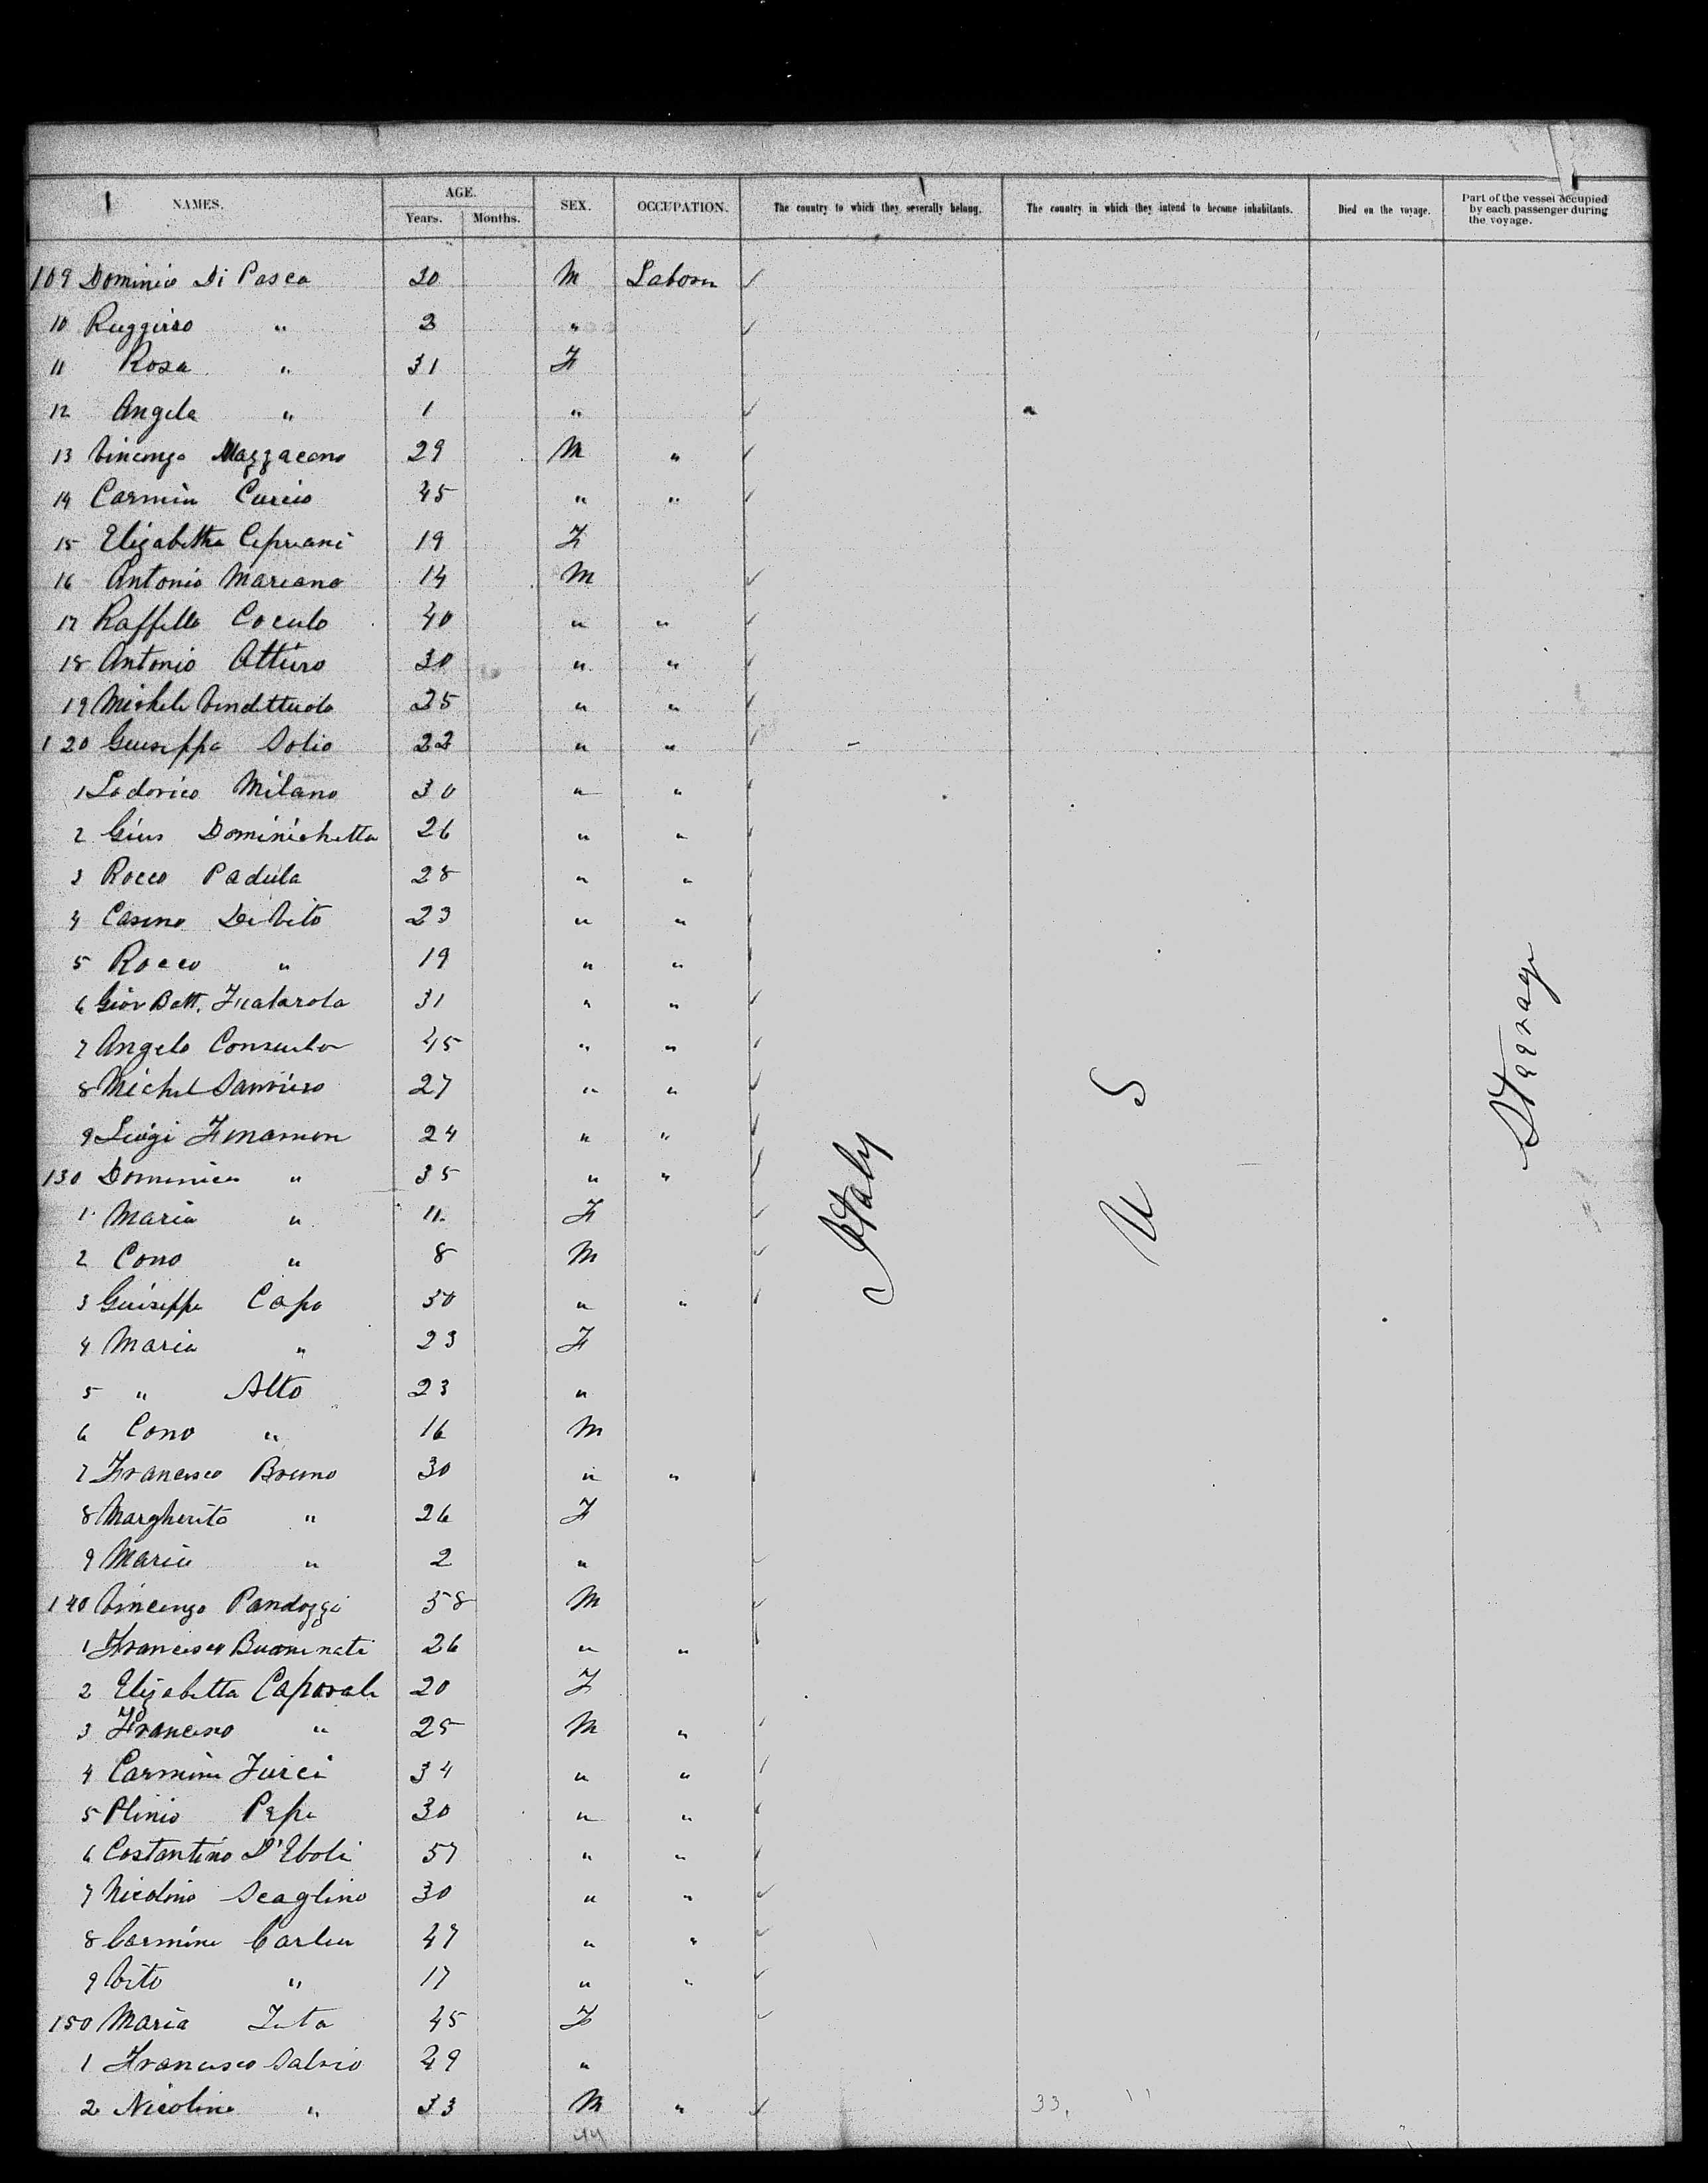 NAMES. AGE. Years. Months. SEX. OCCUPATION. The country to which they severally belong. The country in which they intend to become inhabitants. Died on the voyage. Part of the vessel accupied by each passenger during the voyage.
109 Dominico Di Pasca 30 M Laborer
10 Ruggiero " 3 "
11 Rosa " 31 F
12 Angela " 1 "
13 Vincenzo Mazzacano 29 M "
14 Carmin Curcio 45 " "
15 Elizabetta Cipriani 19 F
16 Antonio Mariano 14 M
17 Raffello Coculo 40 " "
18 Antonio Atturo 30 " "
19 Michele Vendittuolo 25 " "
120 Giuseppe Solio 22 " "
1 Lodovico Milano 30 " "
2 Gius Dominichetta 26 " "
3 Rocco Padula 28 " "
4 Casmo De Vito 23 " "
5 Rocco " 19 " "
6 Giov Batt. 31 " "
7 Angelo 45 " "
8 Michel 27 " "
9 Luigi Finamon 24 " "
130 Dominico " 35 " "
1 Maria " 11 F
2 Cono " 8 M
3 Giuseppe Capo 30 " "
4 Maria " 23 F
5 " Alto 23 "
6 Cono " 16 M
7 Francesco Bruno 30 " "
8 Margherita " 26 F
9 Maria " 2 "
140 Vincenzo Pandozzi 58 M
1 Francesco Buoninati 26 " "
2 Elizabetta Caporale 20 F
3 Francesco " 25 M "
4 Carmine Turci 34 " "
5 Plinio Pepe 30 " "
6 Costantino D'Eboli 57 " "
7 Nicolino Scaglino 30 " "
8 Carmine Carlea 47 " "
9 Vito " 17 " "
150 Maria 45 F
1 Francesco Salvio 29 "
2 Nicolino " 33 M "
Italy
U S
Steerage
33, 11
44